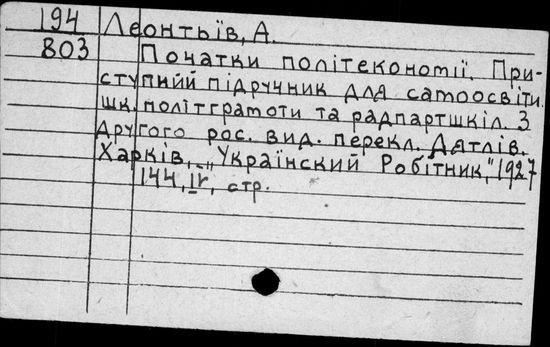 194 Леонтьїв, А.
803 Початки політекономії. При-
ступний підручник для самоосвіти.
шк. політграмоти та радпартшкіл. З
другого рос. вид. перекл. Дятлів.
Харків, „Українский Робітник," 1927
144, IV, стр.